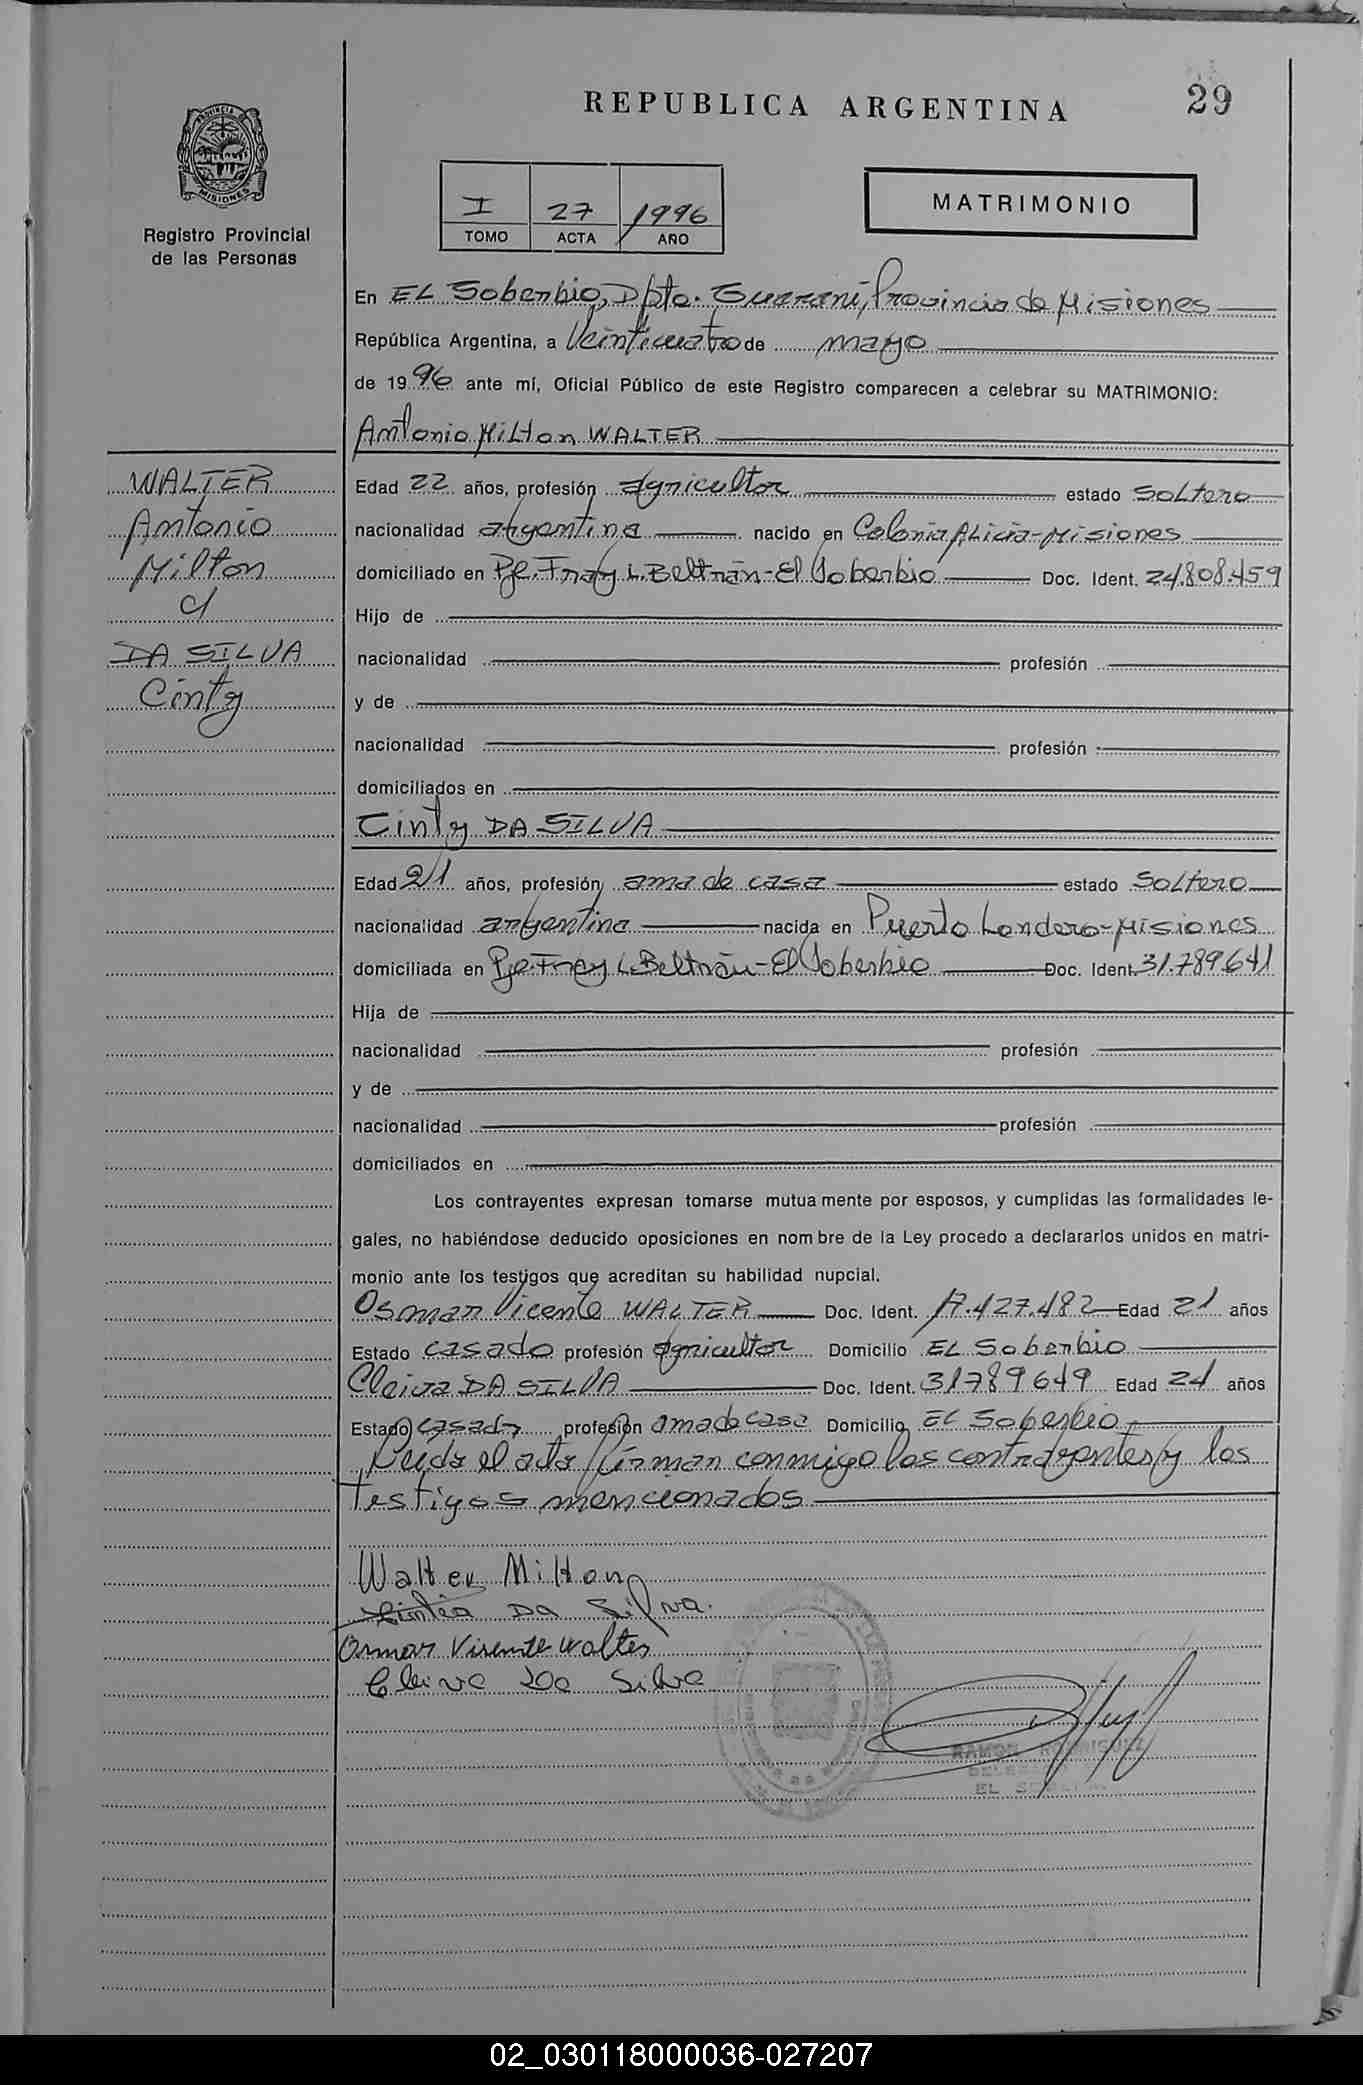 REPUBLICA ARGENTINA
29
PROVINCIA DE
MISIONES
Registro Provincial
de las Personas
I 27 1996
TOMO ACTA AÑO
MATRIMONIO
En EL Soberbio, Dpto. Guaraní, Provincia de Misiones
República Argentina, a Veinticuatro de mayo
de 1996 ante mí, Oficial Público de este Registro comparecen a celebrar su MATRIMONIO:
Antonio Milton WALTER
WALTER
Antonio
Milton
c/
DA SILVA
Cinty
Edad 22 años, profesión agricultor estado Soltero
nacionalidad argentina nacido en Colonia Alicia-Misiones
domiciliado en Pje. Fray L. Beltrán-El Soberbio Doc. Ident. 24.808.459
Hijo de
nacionalidad profesión
y de
nacionalidad profesión
domiciliados en
Cinty DA SILVA
Edad 21 años, profesión ama de casa estado Soltero
nacionalidad argentina nacida en Puerto Londero-Misiones
domiciliada en Pje. Fray L. Beltrán-El Soberbio Doc. Ident. 31.789.641
Hija de
nacionalidad profesión
y de
nacionalidad profesión
domiciliados en
Los contrayentes expresan tomarse mutuamente por esposos, y cumplidas las formalidades le-
gales, no habiéndose deducido oposiciones en nombre de la Ley procedo a declararlos unidos en matri-
monio ante los testigos que acreditan su habilidad nupcial.
Osmar Vicente WALTER Doc. Ident. 17.427.482 Edad 21 años
Estado casado profesión agricultor Domicilio EL Soberbio
Cleiva DA SILVA Doc. Ident. 31789649 Edad 21 años
Estado casado profesión ama de casa Domicilio EL Soberbio
Leída el acta firman conmigo los contrayentes y los
testigos mencionados
Walter Milton
Cintia Da Silva.
Osmar Visente Walter
Cleiva Da Silva
RAMON RODRIGUEZ
EL SOBERBIO
02_030118000036-027207